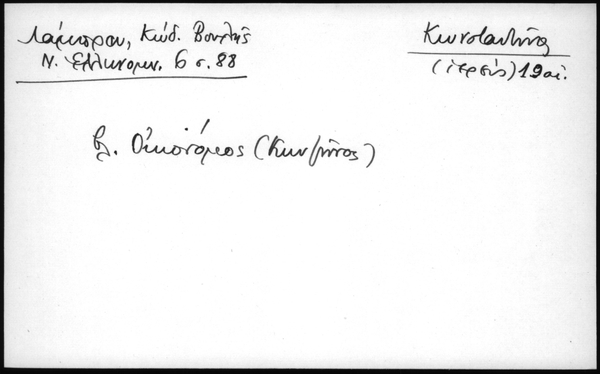 Λάμπρου, Κώδ. Βουλῆς
Ν. Ἑλληνομν. 6 σ. 88
Κωνσταντῖνος
(ἱερεύς) 19 αἰ.
βλ. Οἰκονόμος (Κων/τῖνος)